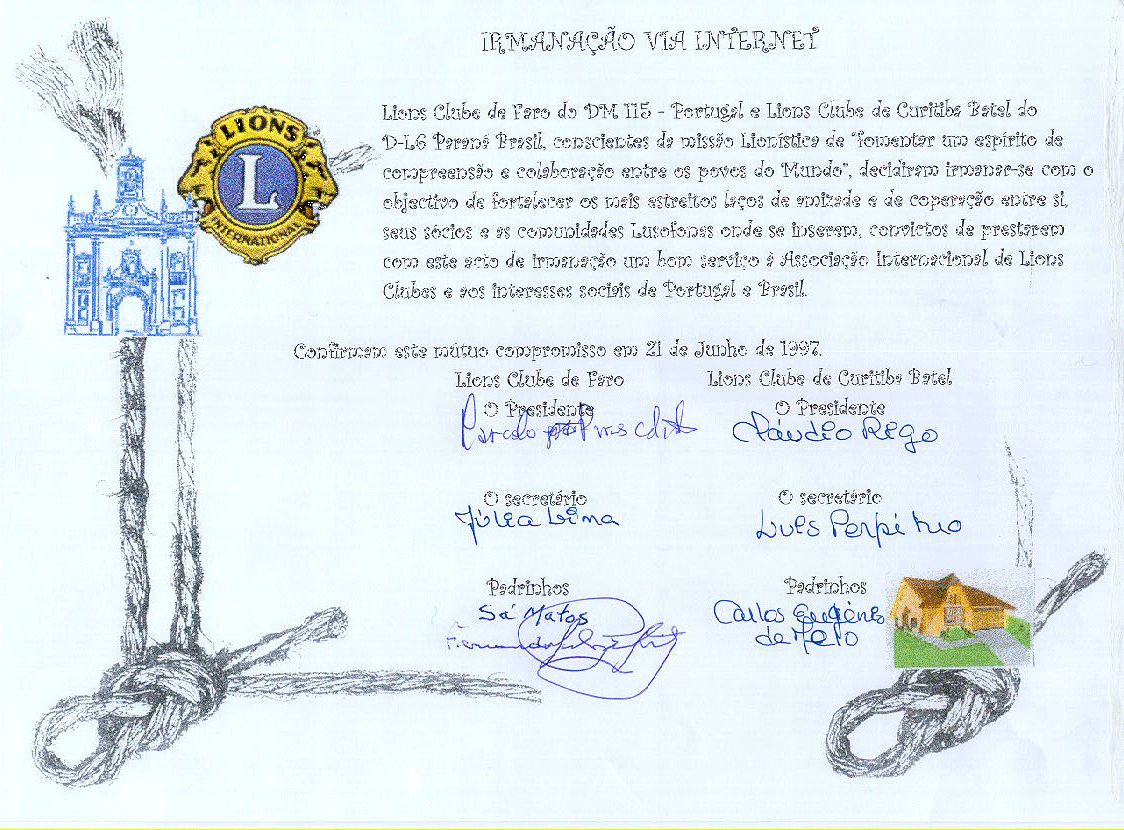 IRMANAÇÃO VIA INTERNET
LIONS
L
INTERNATIONAL
Lions Clube de Faro do DM 115 - Portugal e Lions Clube de Curitiba Batel do
D-L6 Paraná Brasil, conscientes da missão Lionística de "fomentar um espírito de
compreensão e colaboração entre os povos do Mundo", decidiram irmanar-se com o
objectivo de fortalecer os mais estreitos laços de amizade e de coperação entre si,
seus sócios e as comunidades Lusófonas onde se inserem, convictos de prestarem
com este acto de irmanação um bom serviço á Associação Internacional de Lions
Clubes e aos interesses sociais de Portugal e Brasil.
Confirmam este mútuo compromisso em 21 de Junho de 1997.
Lions Clube de Faro Lions Clube de Curitiba Batel
O Presidente O Presidente
Cláudio Rego
O secretário O secretário
Júlia Lima Luís Perpétuo
Padrinhos Padrinhos
Sá Matos Carlos Eugénio
Fernando de Melo